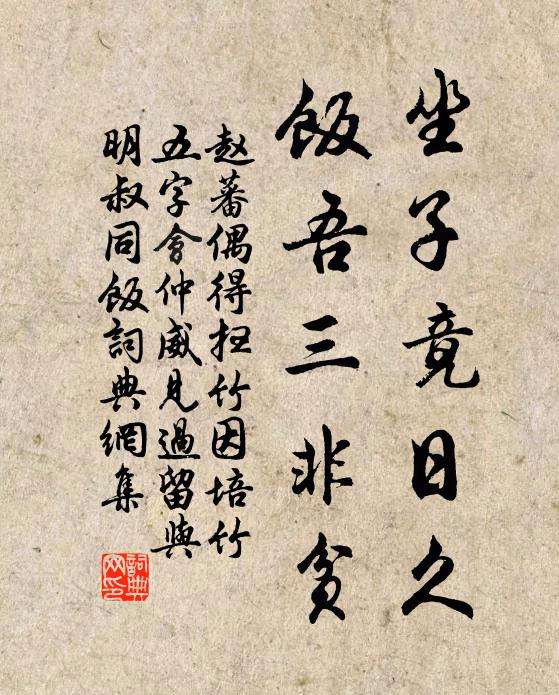 坐子竟日久
飯吾三非貧
赵蕃偶得扫竹因培竹
五字會仲威見過留與
明叔同飯詞典網集
詞典
网印